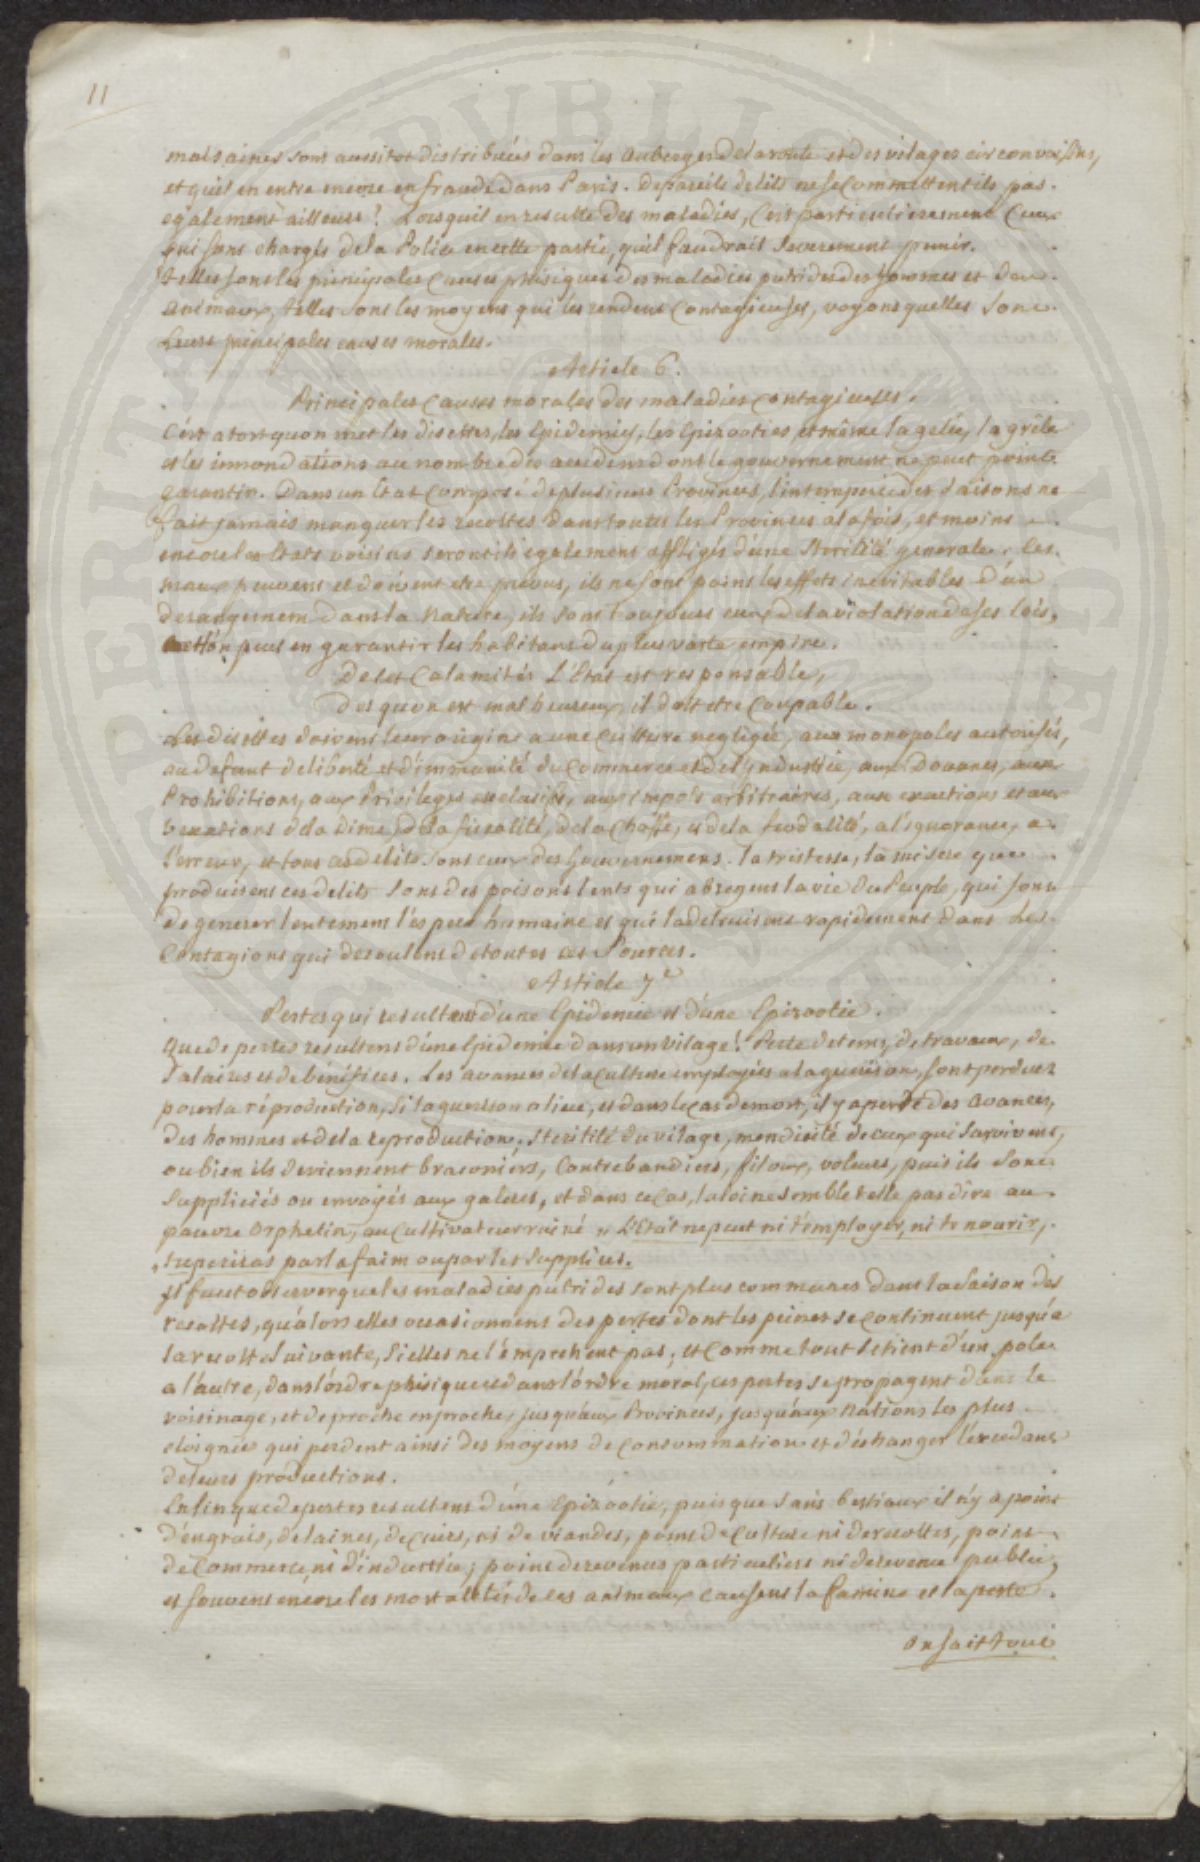 11
mal saines sont aussitot distribuées dans les auberges de la route et des vilages circonvoisins,
et qu'il en entre encore en fraude dans Paris. De pareils delits ne se Commettent ils pas
egalement ailleurs? Lorsquil en resulte des maladies, C'est particulierement Ceux
qui sont chargés de la Police en cette partie, qu'il faudrait severement punir.
telles sont les principales Causes phisiques des maladies putrides des hommes et des
animaux, telles sont les moyens qui les rendent Contagieuses, voyons quelles sont
Leurs principales causes morales.
Article 6.
Principales Causes morales des maladies contagieuses.
C'est a tort quon met les disettes, les Epidemies, les Epizooties et même la gelée, la grêle
et les innondations au nombre des accidens dont le gouvernement ne peut point
garantir. Dans un Etat Composé de plusieurs Provinces, l'intemperie des saisons ne
fait jamais manquer les recoltes dans toutes les Provinces a la fois, et moins
encore les Etats voisins seront ils egalement affligés d'une Sterilité generale. les
maux peuvent et doivent etre prevus, ils ne sont point les effets inevitables d'un
derangement dans la Nature, ils sont toujours ceux de la violation de ses lois,
et l'on peut en garantir les habitans du plus vaste empire.
De les Calamités L'Etat est responsable,
Des quon est malheureux, il doit etre Coupable.
Les disettes doivent leur origine a une Culture negligée, aux monopoles autorisés,
au defaut de liberté et d'immunité du Commerce et de l'yndustrie, aux Douanes, aux
Prohibitions, aux Privileges exclusifs, aux impots arbitraires, aux exactions et aux
vexations de la dime, de la fiscalité, de la Chasse, et de la feodalité, a l'ignorance, a
l'erreur, et tous ces delits sont ceux des gouvernemens. la tristesse, la misere que
produisent ces delits sont des poisons lents qui abregent la vie du Peuple, qui font
degenerer lentement l'éspece humaine et qui la detruisent rapidement dans les
Contagions qui decoulent de toutes ces Sources.
Article 7e
Pertes qui resultent d'une Epidemie et d'une Epizootie.
Que de pertes resultent d'une Epidemie dans un vilage! Perte de tems, de travaux, de
Salaires et de bénéfices. Les avances de la culture employées a la guerison, sont perdues
pour la réproduction, si la guerison a lieu, et dans le cas de mort, il y a perte des avances,
des hommes et de la reproduction. Sterilité du vilage, mendicité de ceux qui survivent,
ou bien ils deviennent braconniers, Contrebandiers, filoux, voleurs, puis ils sont
Suppliciés ou envoyés aux galeres, et dans ce Cas, la loi ne semble t elle pas dire au
pauvre Orphelin, au Cultivateur ruiné „ L'Etat ne peut ni t'employer, ni te nourir,
„ tu periras par la faim ou par les Supplices.
Jl faut observer que les maladies putrides sont plus communes dans la Saison des
recoltes, qu'alors elles occasionnent des pertes dont les peines se Continuent jusqu'a
la recolte suivante, si elles ne l'émpechent pas; et Comme tout se tient d'un pole
a l'autre, dans l'ordre phisique et dans l'ordre moral, ces pertes se propagent dans le
voisinage, et de proche en proche, jusqu'aux Provinces, jusqu'aux Nations les plus
eloignées qui perdent ainsi des moyens de Consommation et d'échanger l'éxcedant
de leurs productions.
Enfin que de pertes resultent d'une Epizootie, puisque sans bestiaux il n'y a point
d'engrais, de laines, de Cuirs, ni de viandes, point de Culture ni de recoltes, point
de Commerce ni d'industrie; point de revenus particuliers ni de revenu public,
et souvent encore les mortalités de ces animaux causent la famine et la peste.
On sait tout